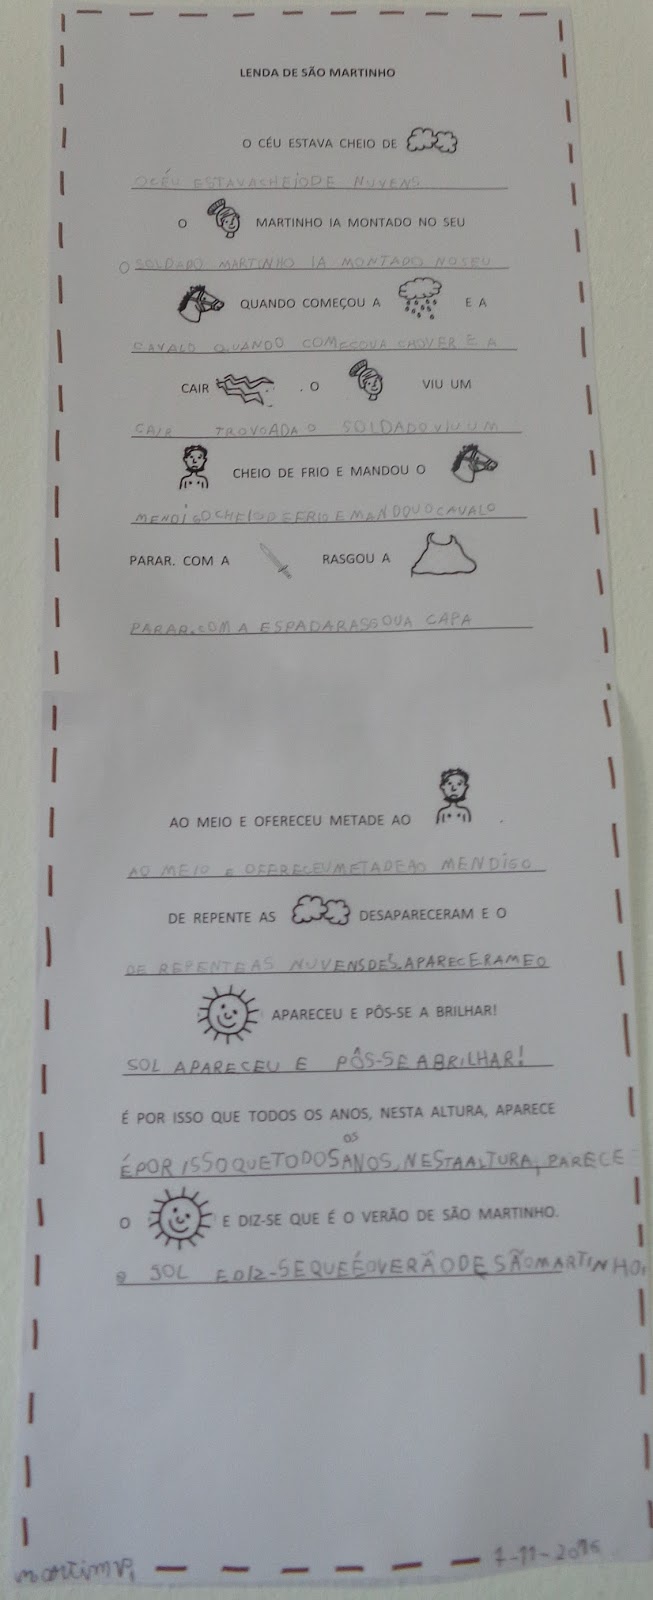 LENDA DE SÃO MARTINHO
O CÉU ESTAVA CHEIO DE
O CÉU ESTAVA CHEIO DE NUVENS
O MARTINHO IA MONTADO NO SEU
O SOLDADO MARTINHO IA MONTADO NO SEU
QUANDO COMEÇOU A E A
CAVALO QUANDO COMEÇOU A CHOVER E A
CAIR . O VIU UM
CAIR TROVOADA O SOLDADO VIU UM
CHEIO DE FRIO E MANDOU O
MENDIGO CHEIO DE FRIO E MANDOU O CAVALO
PARAR. COM A RASGOU A
PARAR. COM A ESPADA RASGOU A CAPA
AO MEIO E OFERECEU METADE AO .
AO MEIO E OFERECEU METADE AO MENDIGO
DE REPENTE AS DESAPARECERAM E O
DE REPENTE AS NUVENS DESAPARECERAM E O
APARECEU E PÔS-SE A BRILHAR!
SOL APARECEU E PÔS-SE A BRILHAR!
É POR ISSO QUE TODOS OS ANOS, NESTA ALTURA, APARECE
OS
É POR ISSO QUE TODOS ANOS, NESTA ALTURA, PARECE
O E DIZ-SE QUE É O VERÃO DE SÃO MARTINHO.
O SOL E DIZ-SE QUE É O VERÃO DE SÃO MARTINHO.